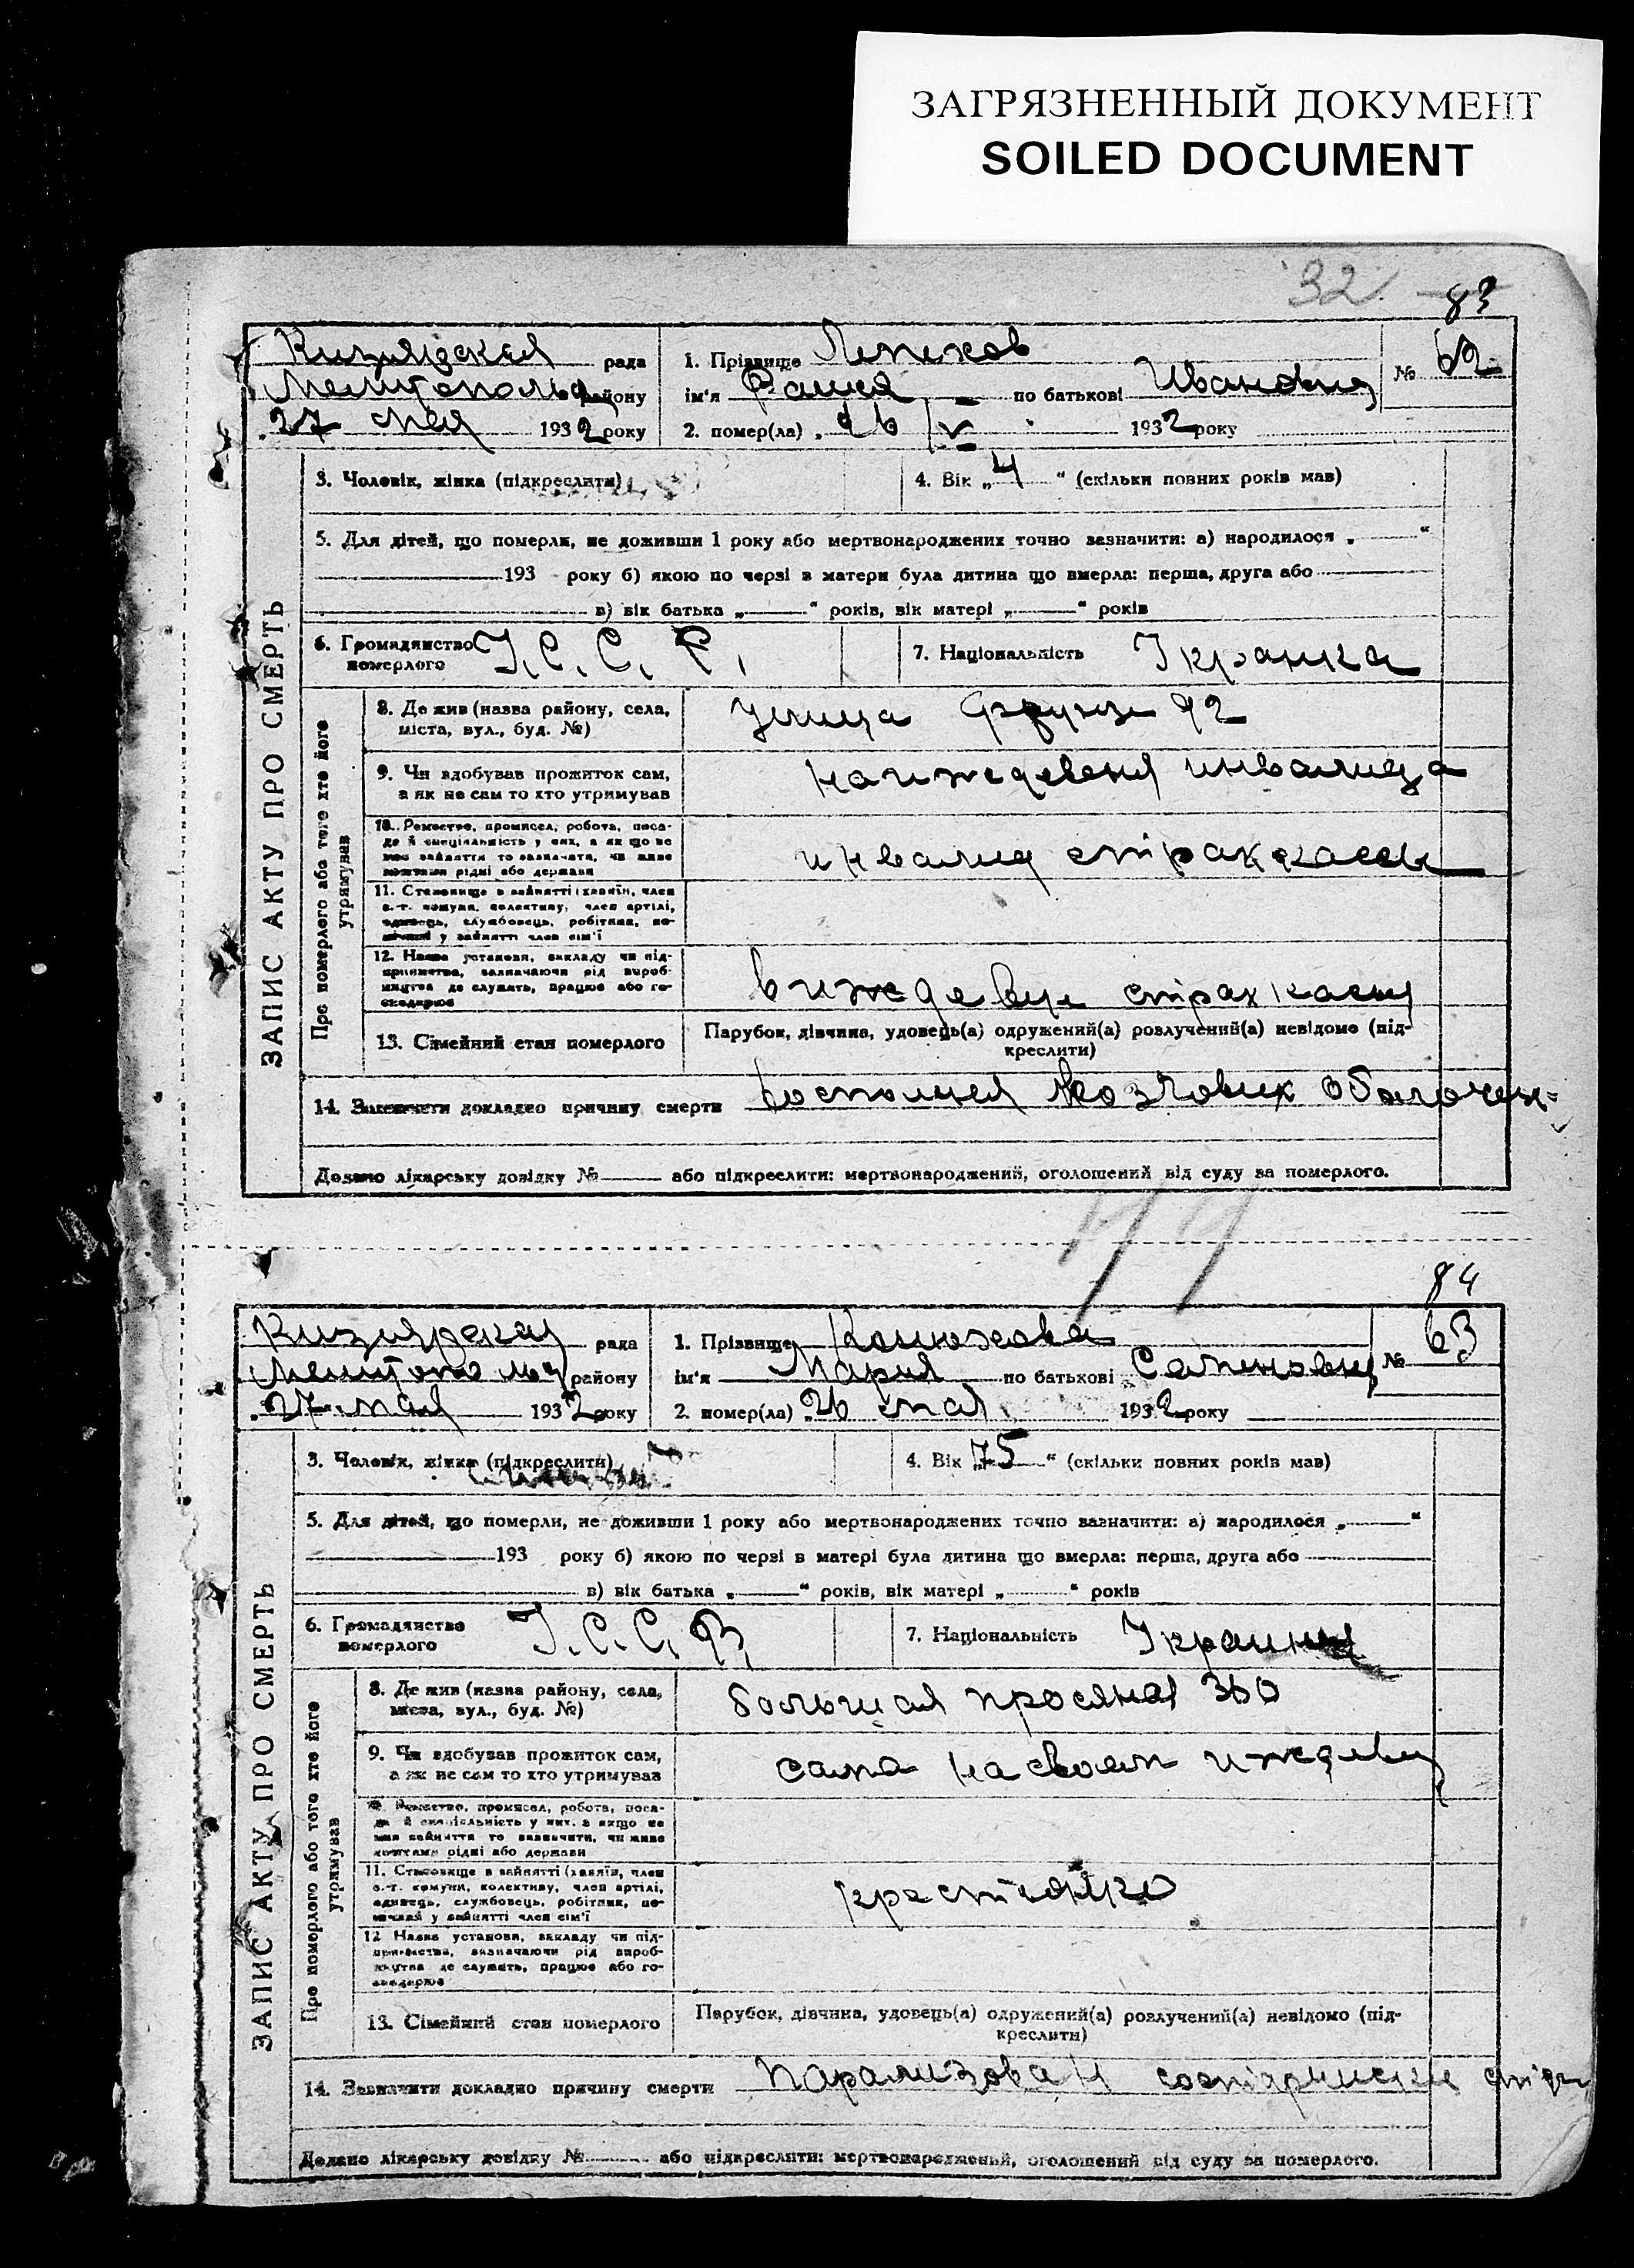 ЗАГРЯЗНЕННЫЙ ДОКУМЕНТ
SOILED DOCUMENT
32
83
Кизиярская рада
1. Прізвище Лепехов
№ 62
Мелитопольс району
ім'я по батькові Ивановна
27 мая 1932 року
2. помер(ла) „ 26/V 1932 року
ЗАПИС АКТУ ПРО СМЕРТЬ
3. Чоловік, жінка (підкреслити)
4. Вік „ 4 “ (скільки повних років мав)
5. Для дітей, що померли, не доживши 1 року або мертвонароджених точно зазначити: а) народилося „ “
193 року б) якою по черзі в матери була дитина що вмерла: перша, друга або
в) вік батька „ “ років, вік матері „ “ років
6. Громадянство померлого У. С. С. Р.
7. Національність Украинка
Про померлого або того хто його утримував
8. Де жив (назва району, села, міста, вул., буд. №)
улица Фрунзе 92
9. Чи здобував прожиток сам, а як не сам то хто утримував
на иждевении инвалида
10. Ремество, промисел, робота, посада й спеціальність у них, а як що не мав заняття то зазначити, чи живе коштами рідні або держави
инвалид страхкассы
11. Становище в зайнятті (хазяїн, член с.-г. комуни, колективу, член артілі, одинець, службовець, робітник, помічний у зайнятті член сім'ї
12. Назва установи, закладу чи підприємства, зазначаючи рід виробництва де служить, працює або господарює
в иждевен страх кассы
13. Сімейний стан померлого
Парубок, дівчина, удовець(а) одружений(а) розлучений(а) невідомо (підкреслити)
14. Зазначити докладно причину смерти мозговых оболочек
Додано лікарську довідку № або підкреслити: мертвонароджений, оголошений від суду за померлого.
84
Кизиярская рада
1. Прізвище
№ 63
Мелитополь району
ім'я Мария по батькові
27 мая 1932 року
2. помер(ла) „ 26 мая 1932 року
ЗАПИС АКТУ ПРО СМЕРТЬ
3. Чоловік, жінка (підкреслити)
4. Вік „ 75 “ (скільки повних років мав)
5. Для дітей, що померли, не доживши 1 року або мертвонароджених точно зазначити: а) народилося „ “
193 року б) якою по черзі в матері була дитина що вмерла: перша, друга або
в) вік батька „ “ років, вік матері „ “ років
6. Громадянство померлого У. С. С. Р.
7. Національність
Про померлого або того хто його утримував
8. Де жив (назва району, села, міста, вул., буд. №)
большая просяная 360
9. Чи здобував прожиток сам, а як не сам то хто утримував
сама на своем иждевен
10. Ремество, промисел, робота, посада й спеціальність у них, а якщо не мав зайняття то зазначити, чи живе коштами рідні або держави
11. Становище в зайнятті (хазяїн, член с.-г. комуни, колективу, член артілі, одинець, службовець, робітник, помічний у зайнятті член сім'ї
12. Назва установи, закладу чи підприємства, зазначаючи рід виробництва де служить, працює або господарює
13. Сімейний стан померлого
Парубок, дівчина, удовець(а) одружений(а) розлучений(а) невідомо (підкреслити)
14. Зазначити докладно причину смерти
Додано лікарську довідку № або підкреслити: мертвонароджений, оголошений від суду за померлого.